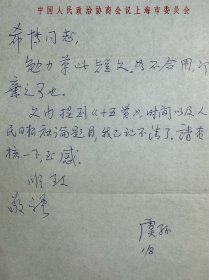 中国人民政治协商会议上海市委员会
希博同志:
勉力草此短文,如不合用,即
弃之可也
文内提到《十五贯》,时间以及人
民日报社论题目,我已记不清了。请查
核一下,至感。
顺致
敬礼
虞孙